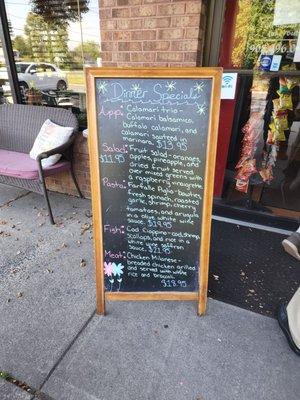 Dinner Specials
Appi: Calamari trio -
Calamari balsamica,
buffalo calamari, and
calamari seafood
marinara. $13.95
Salad: Fruit salad - oranges,
$11.95 apples, pineapple, and
dried fruit served
over mixed greens with
a raspberry vinegrette.
Pasta: Farfalle Puglia - Bowtie,
fresh spinach, roasted
garlic, shrimp, cherry
tomatoes, and arugula
in a olive white wine
sauce. $19.95
Fish: Cod Cioppino - cod, shrimp
scallops, and rice in a
white wine saffron
sauce. $21.95
Meat: Chicken Milanese -
breaded chicken grilled
and served with white
rice and broccoli.
$18.95